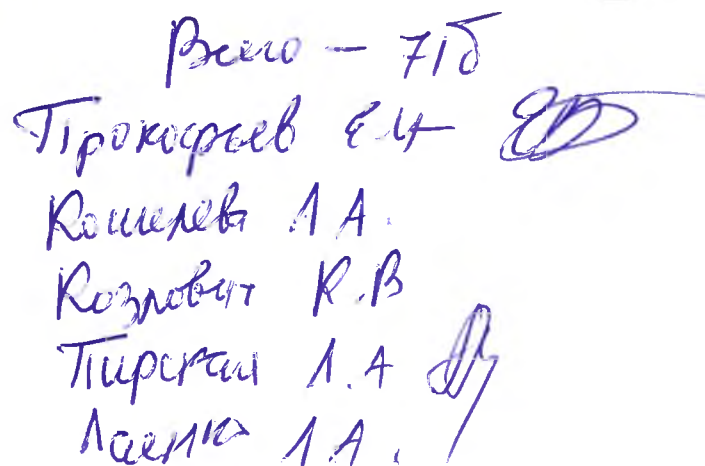 Всего — 71б
Прокофьев Е.И
Кошелева Л А.
Козлович К.В
Пирская Л.А
Л.А.